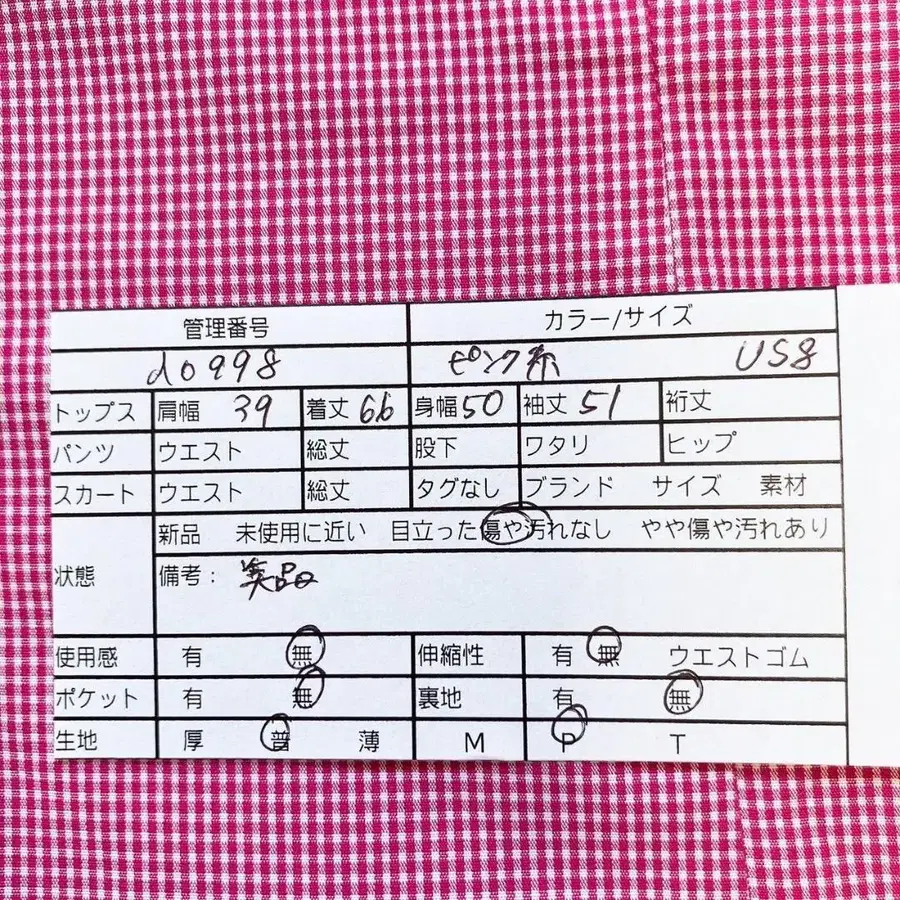 管理番号 カラー/サイズ
d0998 ピンク系 US8
トップス 肩幅 39 着丈 66 身幅 50 袖丈 51 裄丈
パンツ ウエスト 総丈 股下 ワタリ ヒップ
スカート ウエスト 総丈 タグなし ブランド サイズ 素材
状態 新品 未使用に近い 目立った傷や汚れなし やや傷や汚れあり
備考: 美品
使用感 有 無 伸縮性 有 無 ウエストゴム
ポケット 有 無 裏地 有 無
生地 厚 普 薄 M P T